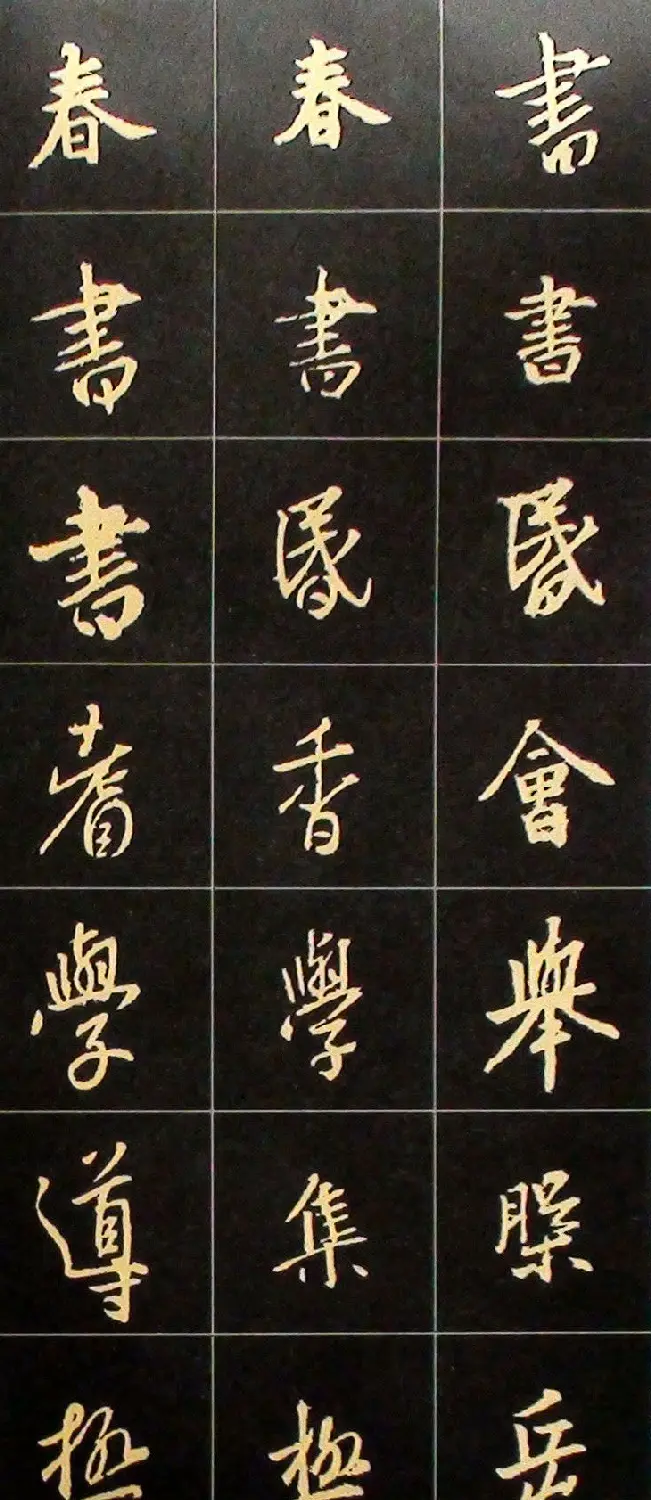 春 春 書
書 書 書
書 昬 昬
耆 香 會
學 學 舉
導 集
極 極 岳